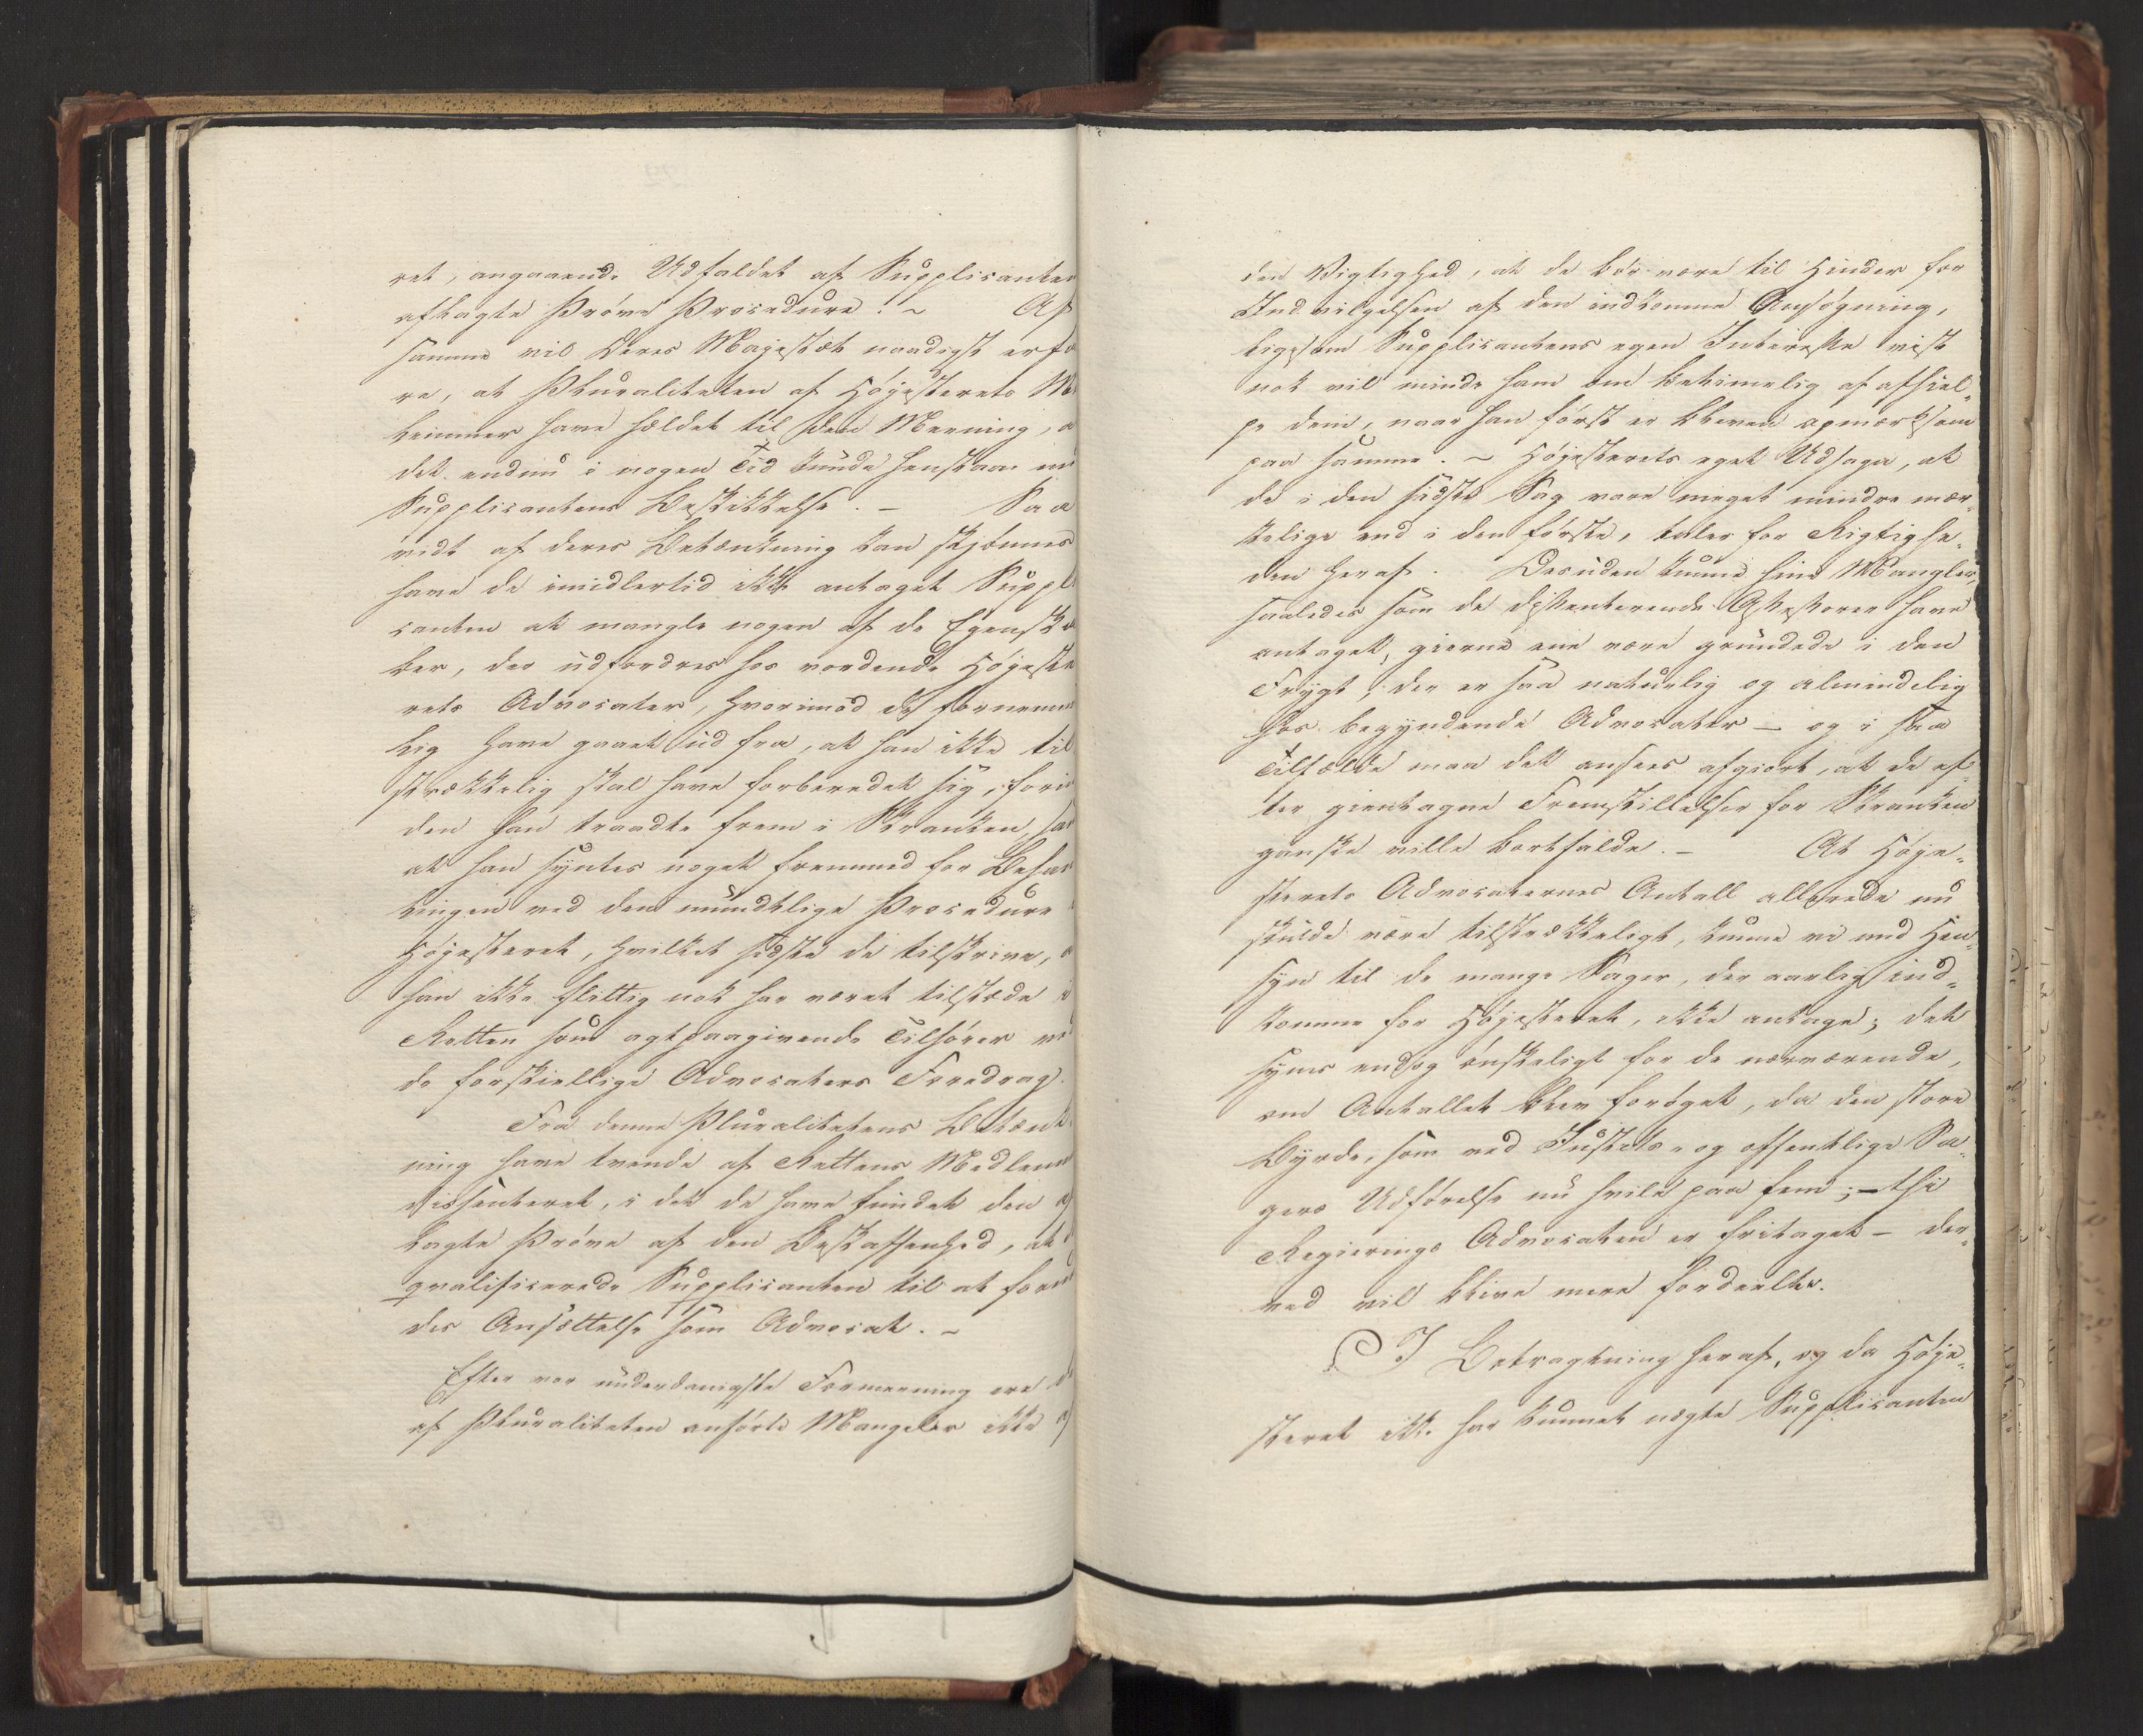 ret, angaaende Udfaldet af Supplicanten
aflagte Prøve Procedure. ~ Af
samme vil Deres Majestæt naadigst erfa
re, at Pluraliteten af Højesterets Me
lemmer have hældet til den Meening, a
det endnu i nogen Tid kunde henstaae me
Supplicantens Beskikkelse. – Saa
vidt af deres Betænkning kan skjønnes
have de imidlertid ikke antaget Suppli
canten at mangle nogen af de Egenska
ber, der udfordres hos vordende Højeste
rets Advocater, hvorimod de fornemme
lig have gaaet ud fra, at han ikke til
strækkelig skal have forberedet sig, forin
den han traadte frem i Skranken, sa
at han syntes noget fremmed for Behan
lingen ved den mundtlige Procedure i
Højesteret, hvilket sidste de tilskrive, a
han ikke flittig nok har været tilstæde i
Retten som agtpaagivende Tilhører ve
de forskiellige Advocaters Foredrag.
Fra denne Pluralitetens Betænk
ning have tvende af Rettens Medlemm
dissenteret, i det de have fundet den af
lagte Prøve af den Beskaffenhed, at d
qvalificerede Supplicanten til at forun
des Ansættelse som Advocat. –
Efter vor underdanigste Formeening ere de
af Pluraliteten anførte Mangler ikke af
den Vigtighed, at de bør være til Hinder for
Indvilgelsen af den indkomne Ansøgning,
ligesom Supplicantens egen Interesse vist
nok vil minde ham om betimelig at afhiel-
pe dem, naar han først er bleven opmærksom
paa samme. ~ Højesterets eget Udsagn, at
de i den sidste Sag vare meget mindre mær-
kelige end i den første, taler for Rigtighe-
den heraf. Desuden kunne hine Mangler,
saaledes som de dissenterende Assessorer have
antaget, gierne ene være grundede i den
Frygt, der er saa naturlig og almindelig
hos begyndende Advocater – og i saa
Tilfælde maa det ansees afgiort, at de ef-
ter gientagne Fremstillelser for Skranken
ganske ville bortfalde. – At Høje-
sterets Advocaternes Antall allerede nu
skulde være tilstrækkeligt, kunne vi med Hen-
syn til de mange Sager, der aarlig ind-
komme for Højesteret, ikke antage; det
synes endog ønskeligt for de nærværende,
om Antallet blev forøget, da den store
Byrde, som ved Justits- og offentlige Sa-
gers Udførelse nu hvile paa fem; – thi
Regierings Advocaten er fritaget – der-
ved vil blive mere fordeelte.
I Betragtning heraf, og da Høje-
steret ikke har kunnet nægte Supplicanten